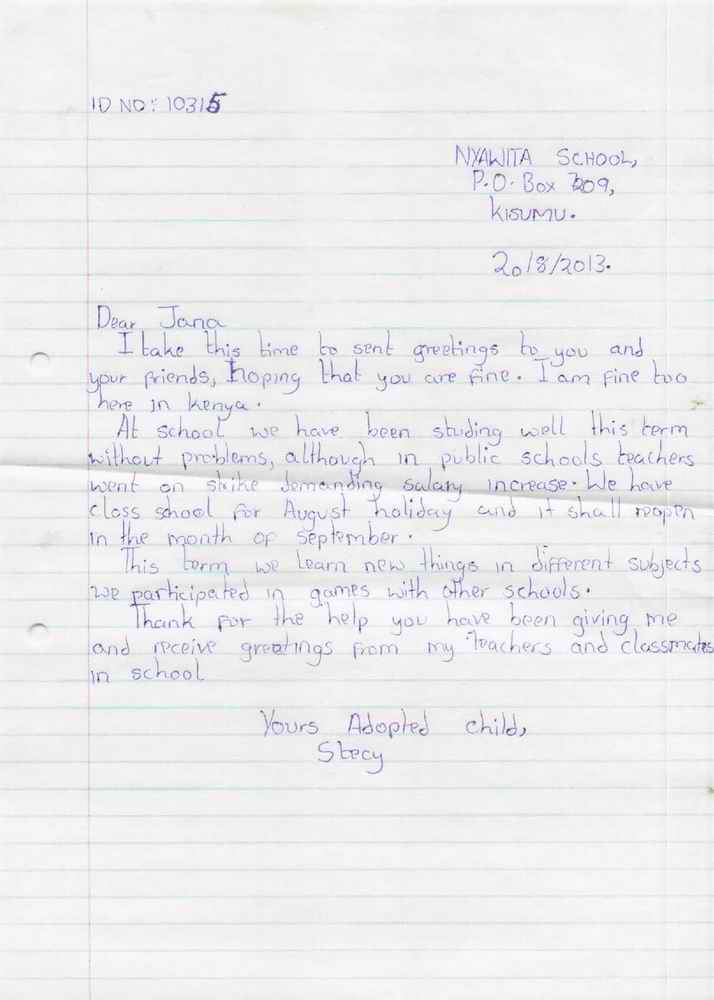 ID NO: 10315
NYAWITA SCHOOL,
P.O. Box 7209,
KISUMU.
20/8/2013.
Dear Jana
I take this time to sent greetings to you and
your friends, hoping that you are fine. I am fine too
here in kenya.
At school we have been studing well this term
without problems, although in public schools teachers
went on strike demanding salary increase. We have
Class school for August holiday and it shall reopen
in the month of September.
This term we learn new things in different subjects
we participated in games with other schools.
Thank for the help you have been giving me
and receive greetings from my teachers and classmates
in school
Yours Adopted child,
Stecy